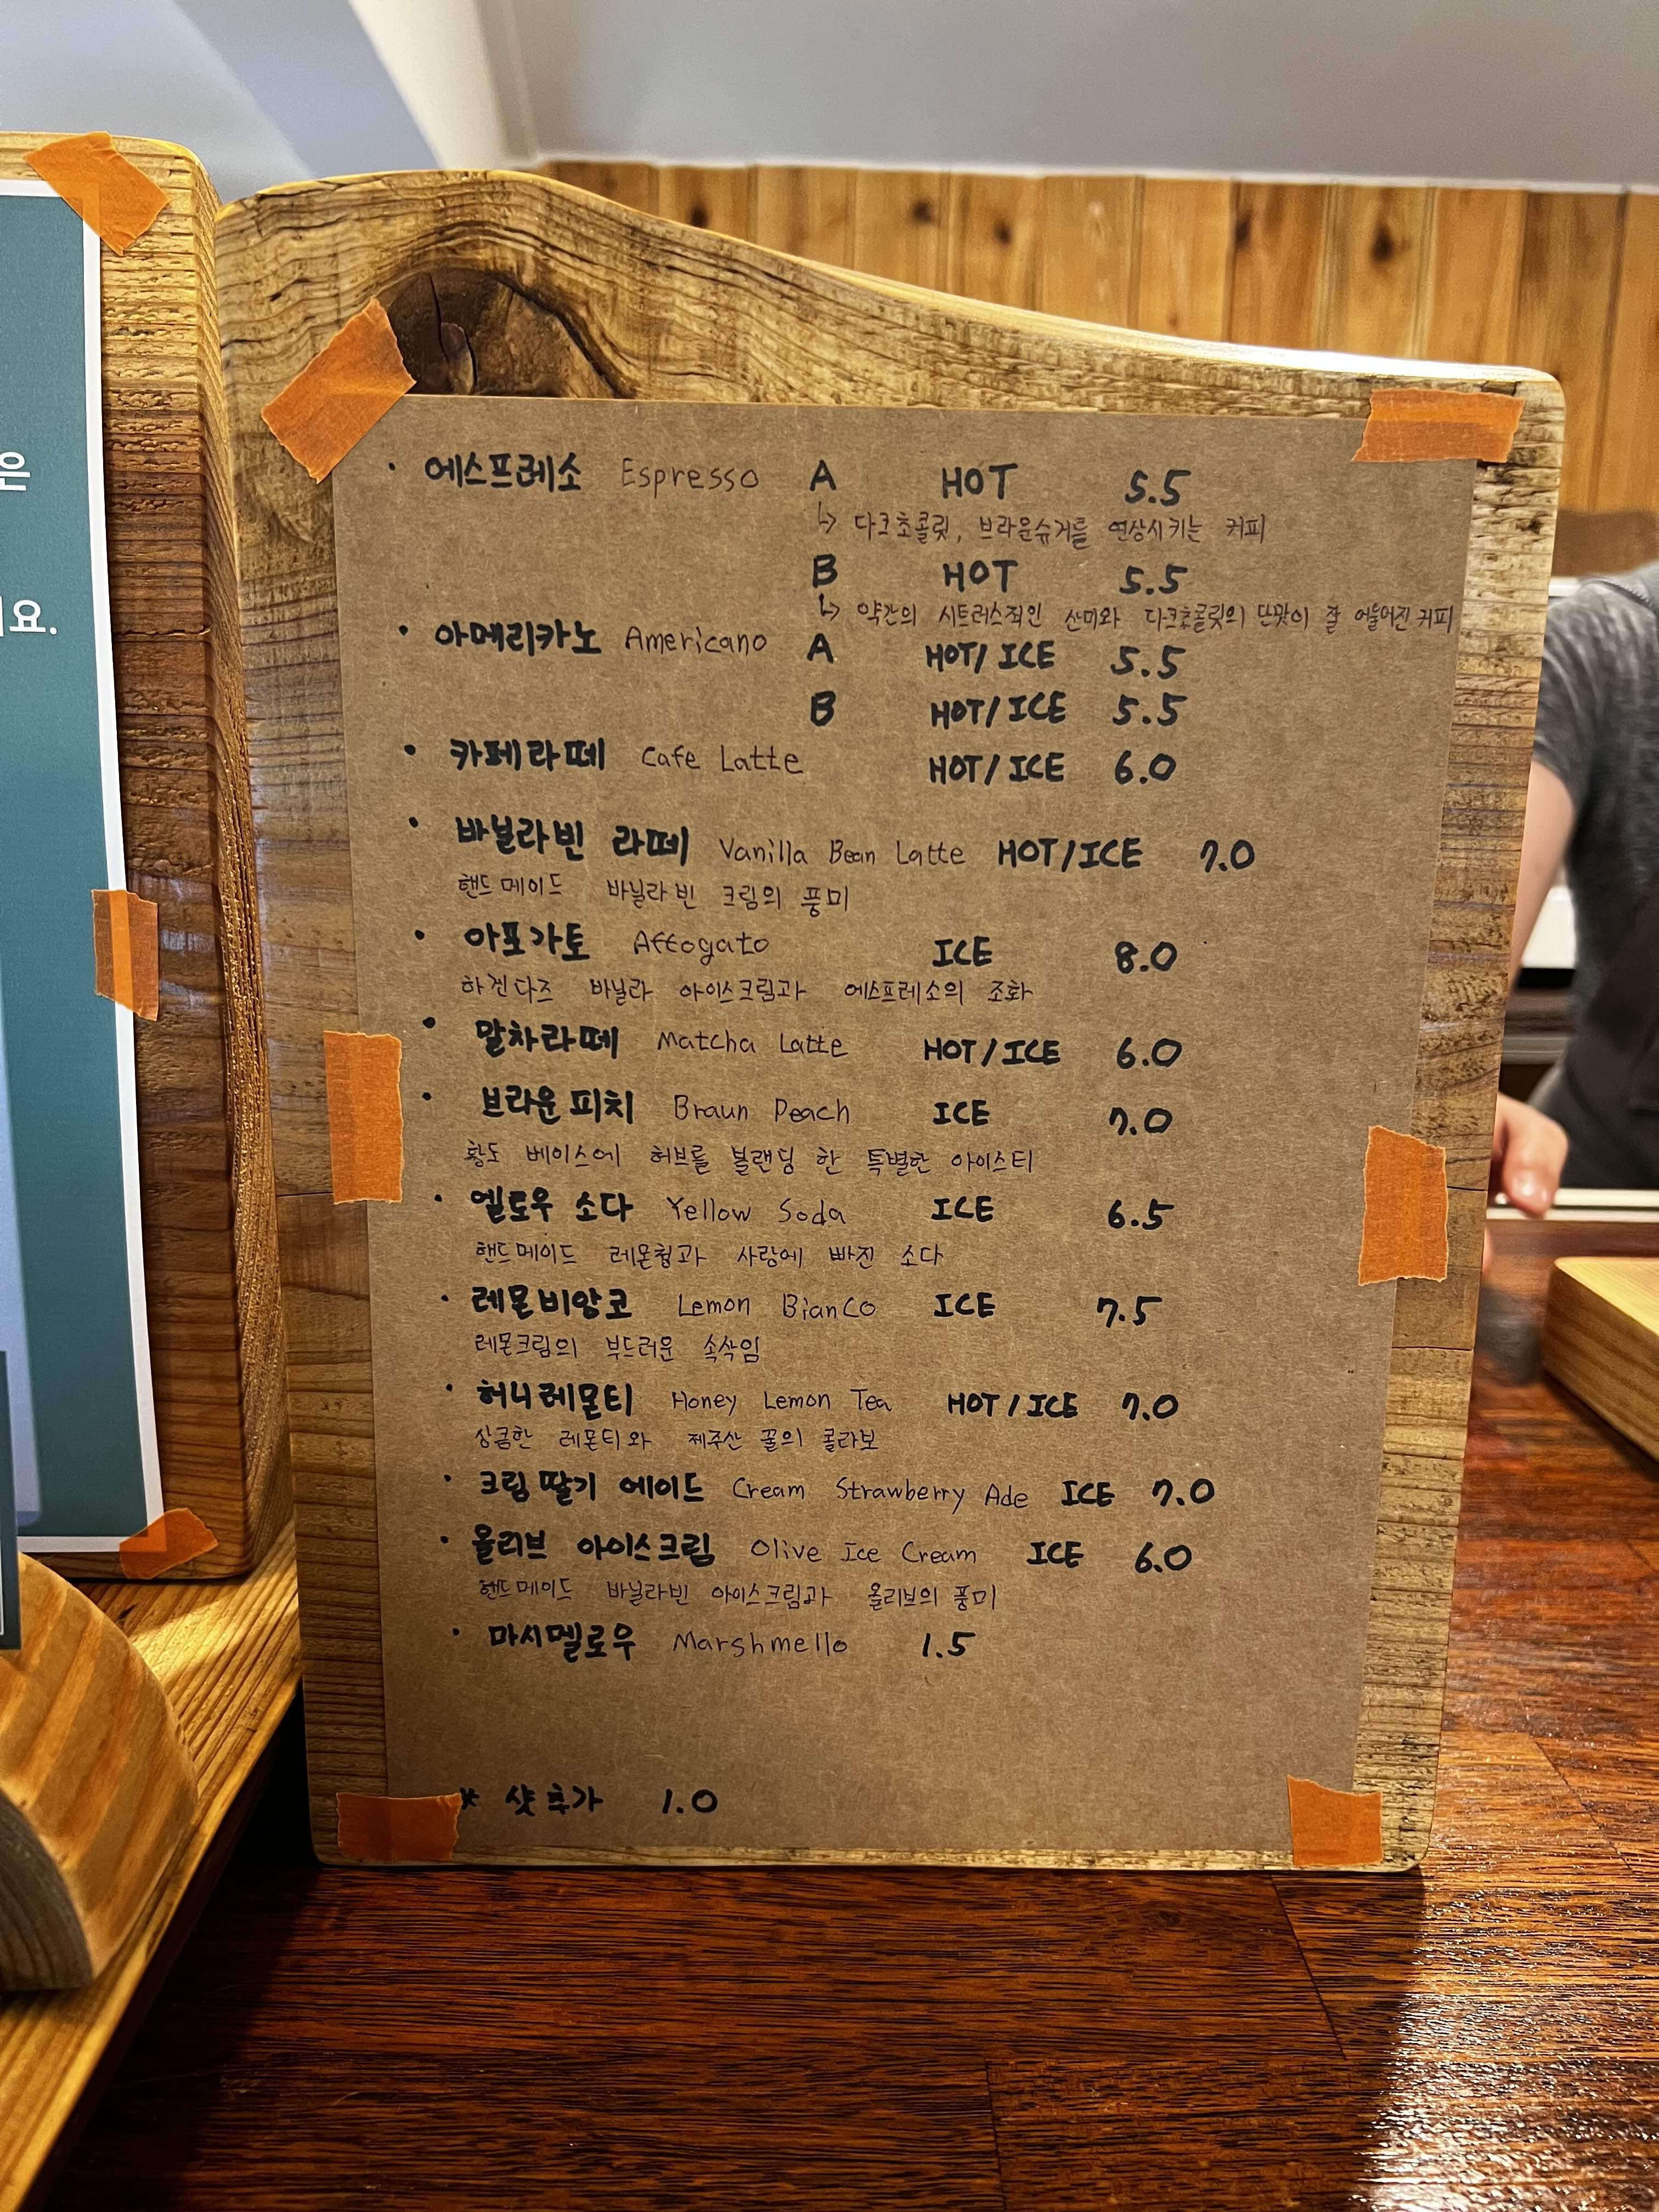 은
요.
· 에스프레소 Espresso A HOT 5.5
↳ 다크초콜릿, 브라운슈거를 연상시키는 커피
B HOT 5.5
↳ 약간의 시트러스적인 산미와 다크초콜릿의 단맛이 잘 어울어진 커피
· 아메리카노 Americano A HOT/ICE 5.5
B HOT/ICE 5.5
· 카페라떼 Cafe Latte HOT/ICE 6.0
· 바닐라빈 라떼 Vanilla Bean Latte HOT/ICE 7.0
핸드메이드 바닐라빈 크림의 풍미
· 아포가토 Affogato ICE 8.0
하겐다즈 바닐라 아이스크림과 에스프레소의 조화
· 말차라떼 Matcha Latte HOT/ICE 6.0
· 브라운피치 Braun Peach ICE 7.0
황도 베이스에 허브를 블랜딩 한 특별한 아이스티
· 옐로우 소다 Yellow Soda ICE 6.5
핸드메이드 레몬청과 사랑에 빠진 소다
· 레몬비앙코 Lemon BianCo ICE 7.5
레몬크림의 부드러운 속삭임
· 허니레몬티 Honey Lemon Tea HOT/ICE 7.0
상큼한 레몬티와 제주산 꿀의 콜라보
· 크림딸기 에이드 Cream Strawberry Ade ICE 7.0
· 올리브 아이스크림 Olive Ice Cream ICE 6.0
핸드메이드 바닐라빈 아이스크림과 올리브의 풍미
· 마시멜로우 Marshmello 1.5
* 샷추가 1.0